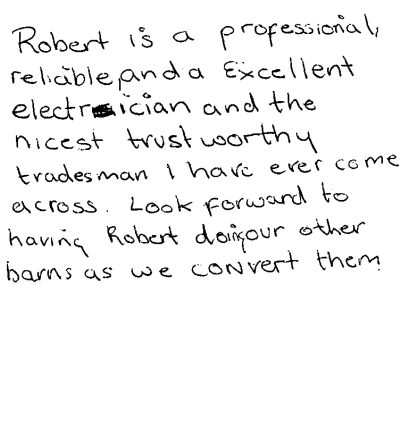 Robert is a professional,
reliable, and a Excellent
electrician and the
nicest trustworthy
tradesman I have ever come
across. Look forward to
having Robert doing our other
barns as we convert them